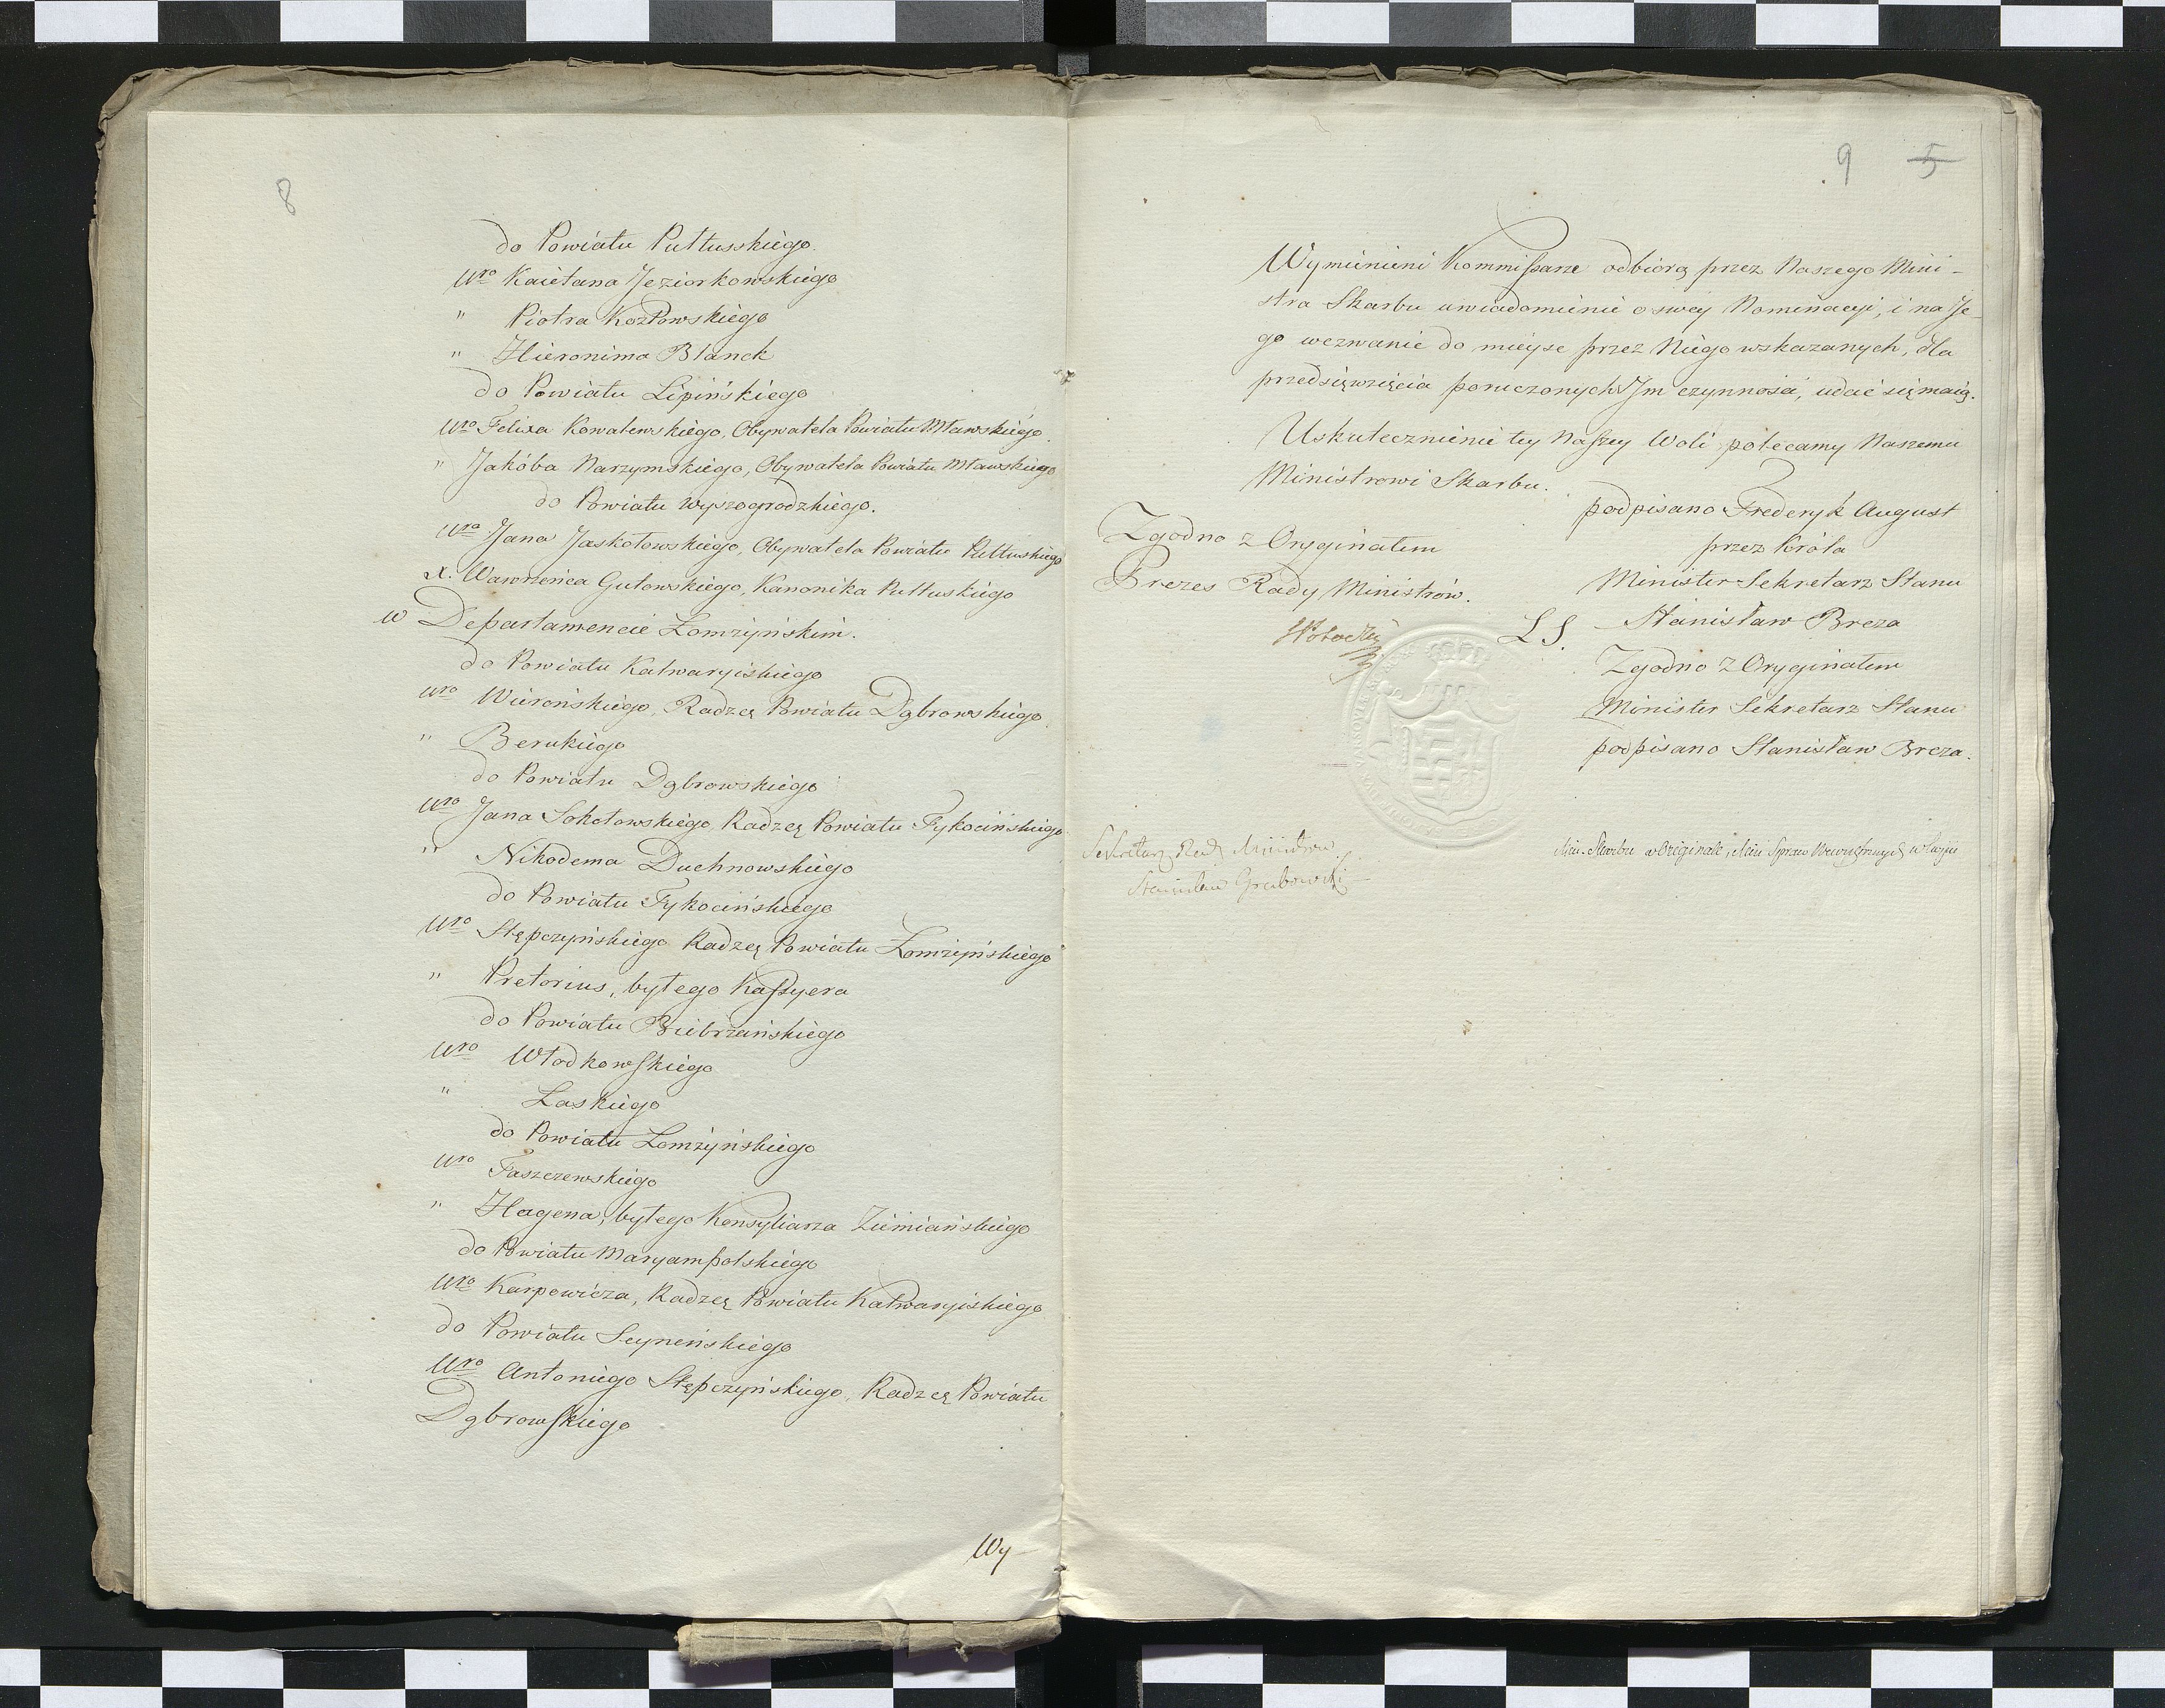 8
do Powiatu Pułtusskiego.
Uro Kaietana Jeziorkowskiego
" Piotra Kozłowskiego
" Hieronima Blanck
do Powiatu Lipińskiego
Uro Felixa Kowalewskiego, Obywatela Powiatu Mławskiego.
" Jakóba Narzymskiego, Obywatela Powiatu Mławskiego
do Powiatu Wyszogrodzkiego.
Uro Jana Jaskołowskiego, Obywatela Powiatu Pułtuskiego
X. Wawrzeńca Gutowskiego, Kanonika Pułtuskiego
w Departamencie Łomżyńskim.
do Powiatu Kalwaryiskiego
Uro Wierońskiego, Radzcę Powiatu Dąbrowskiego.
" Berukiego
do Powiatu Dąbrowskiego
Uro Jana Sokołowskiego, Radzcę Powiatu Tykocińskiego
" Nikodema Duchnowskiego
do Powiatu Tykocińskiego
Uro Stępczyńskiego Radzcę Powiatu Łomżyńskiego
" Pretorius, byłego Kassyera
do Powiatu Biebrzańskiego
Uro Włodkowskiego
" Laskiego
do Powiatu Łomżyńskiego
Uro Faszczewskiego
" Hagena, byłego Konsyliarza Ziemiańskiego
do Powiatu Maryampolskiego
Uro Karpowicza, Radzcę Powiatu Kalwaryiskiego
do Powiatu Seyneńskiego
Uro Antoniego Stępczyńskiego, Radzcę Powiatu
Dąbrowskiego
Wy-
9 5
Wymienieni Kommissarze odbiorą przez Naszego Mini-
stra Skarbu uwiadomienie o swey Nominacyi, i na Je-
go wezwanie do mieysc przez Niego wskazanych, dla
przedsięwzięcia poruczonych Im czynności, udać się maią.
Uskutecznienie tey Naszey Woli polecamy Naszemu
Ministrowi Skarbu.
podpisano Frederyk August
przez Króla
Minister Sekretarz Stanu
LS. Stanisław Breza
Zgodno z Oryginałem
Minister Sekretarz Stanu
podpisano Stanisław Breza.
Zgodno z Oryginałem
Prezes Rady Ministrów.
Sekretarz Rady Ministrów
Stanisław Grabowski
Min. Skarbu w Originale, Min Spraw Wewnętrznych w kopii